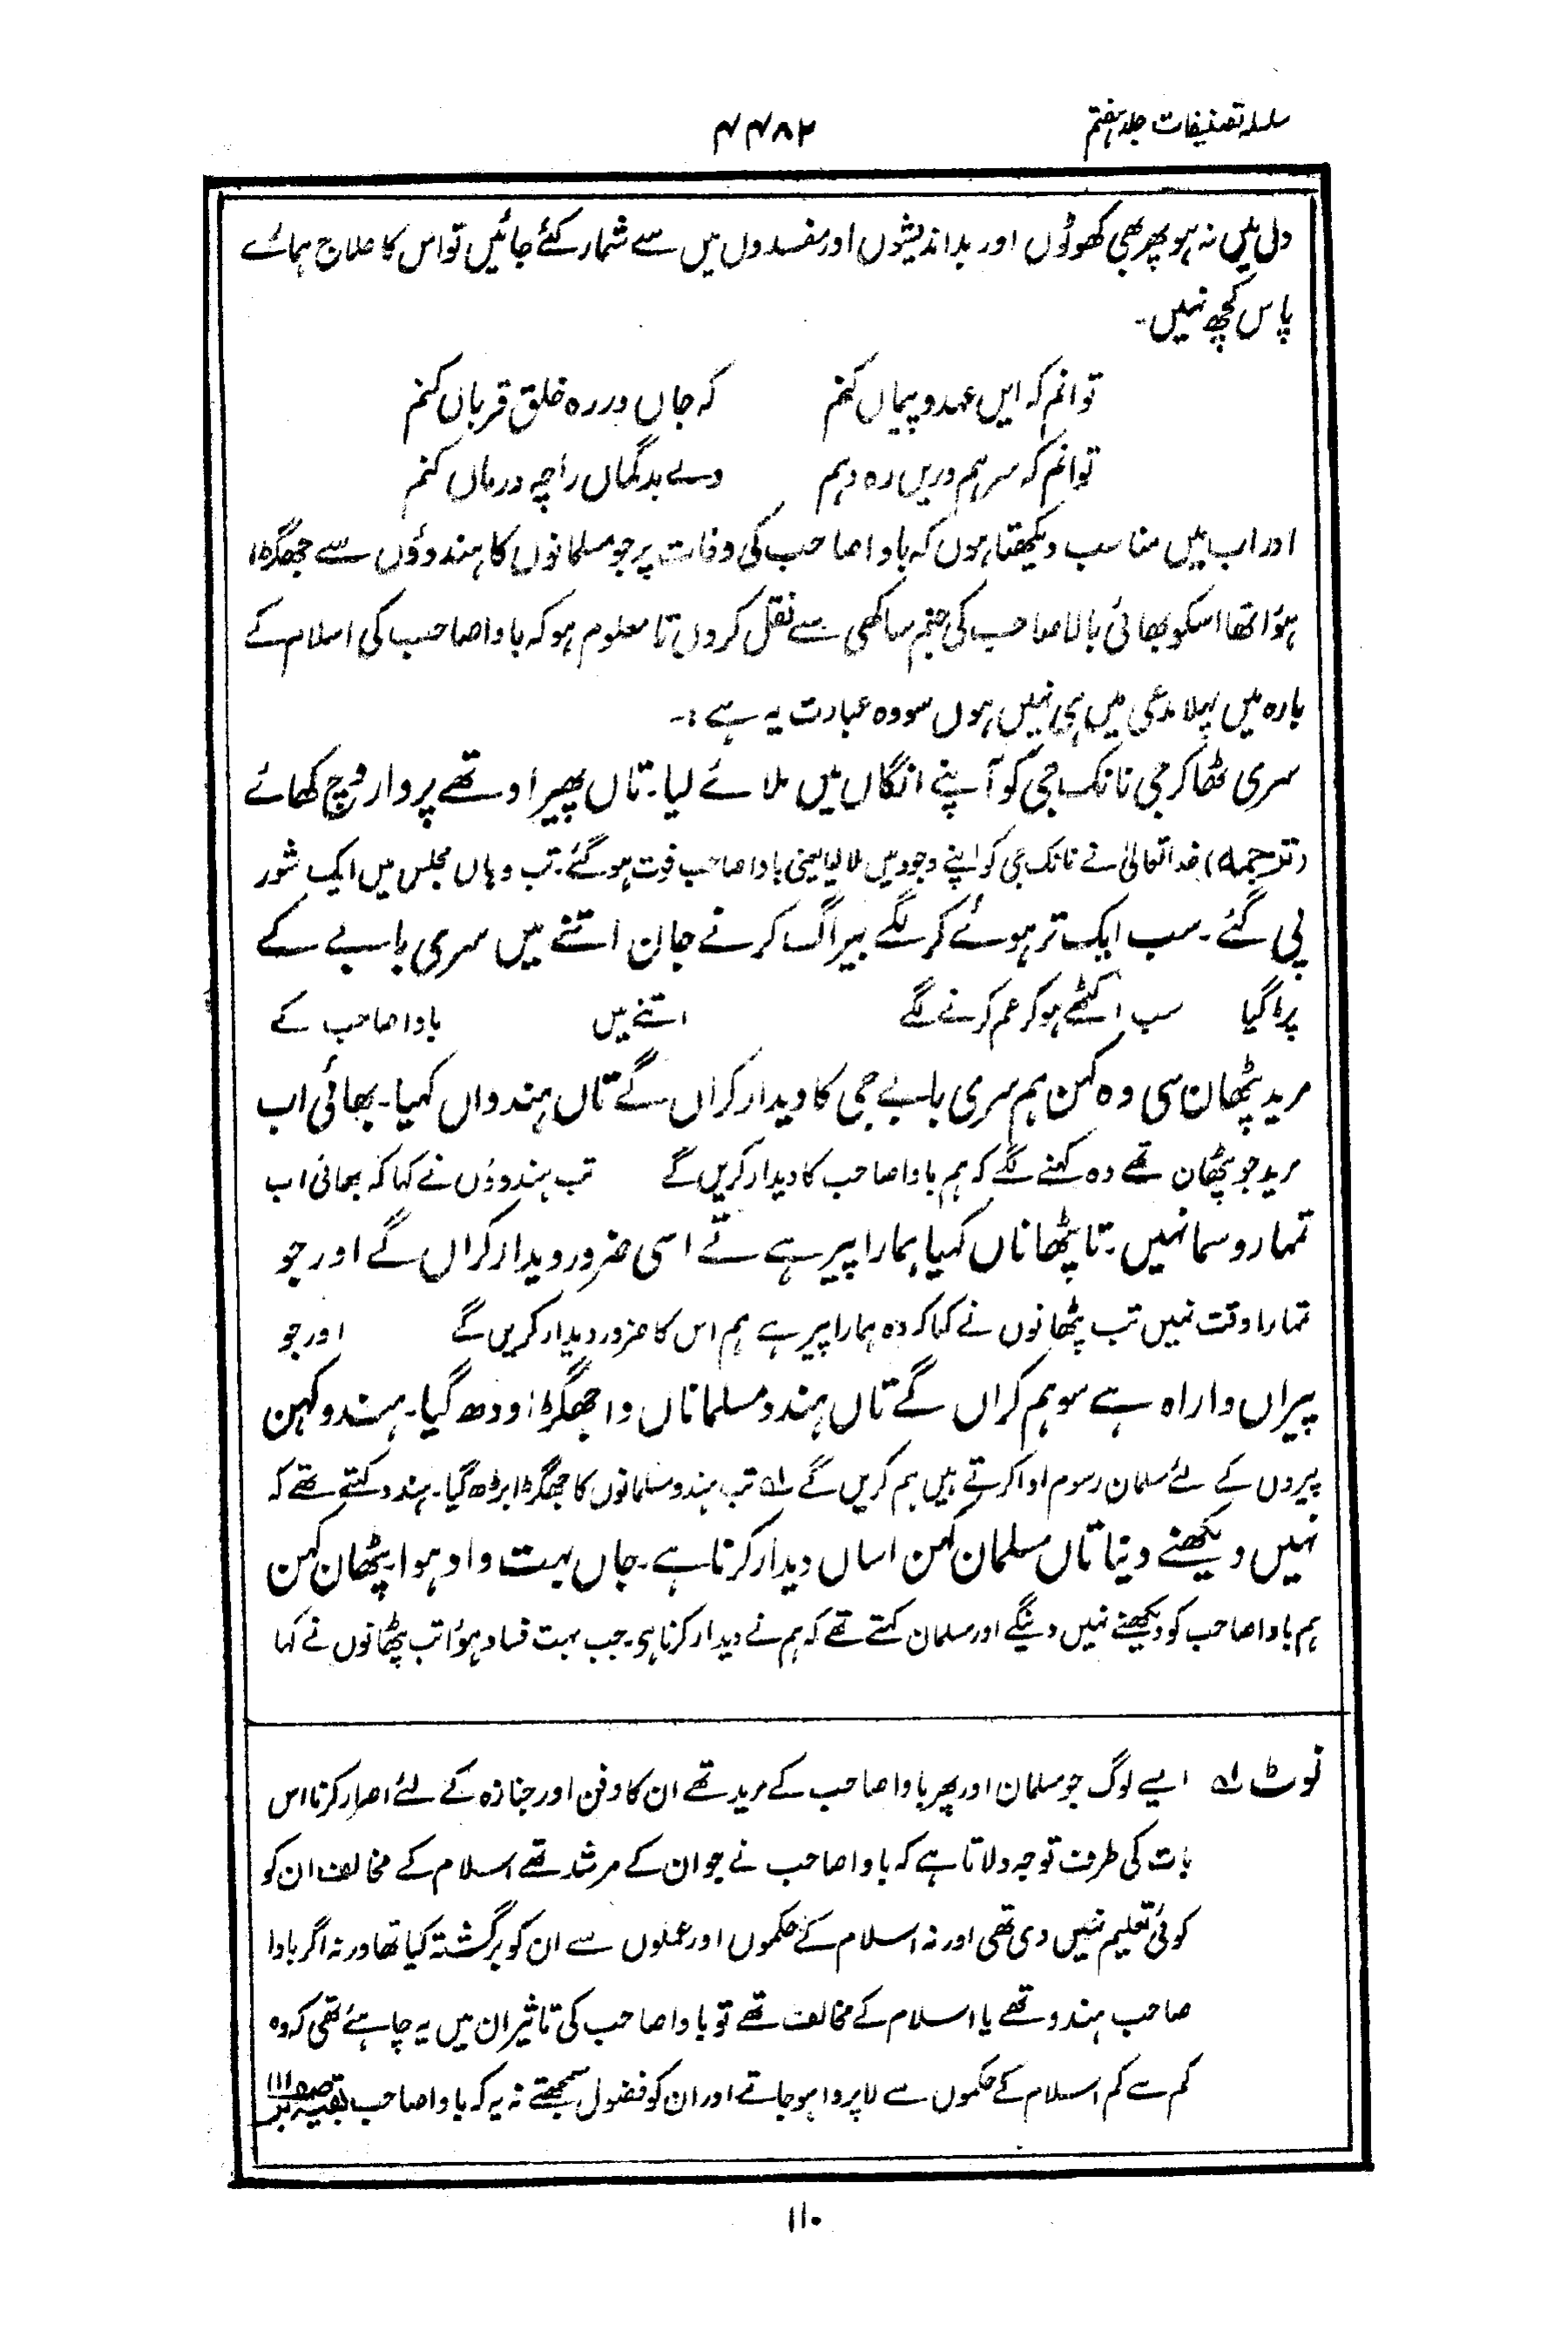 سلسلہ تصنیفات جلد ہفتم
۴۴۸۲
دل میں نہ ہو پھر بھی کھوٹوں اور بداندیشوں اور مفسدوں میں سے شمار کئے جائیں تو اس کا علاج ہمارے
پاس کچھ نہیں۔
توانم کہ ایں عہد و پیماں کنم کہ جاں در رہ خلق قرباں کنم
توانم کہ سر ہم دریں رہ دہم ولے بدگماں را چہ درماں کنم
اور اب میں مناسب دیکھتا ہوں کہ باوا صاحب کی وفات پر جو مسلمانوں کا ہندوؤں سے جھگڑا
ہؤا تھا اسکو بھائی بالا صاحب کی جنم ساکھی سے نقل کردوں تا معلوم ہو کہ باوا صاحب کی اسلام کے
بارہ میں پہلا مدعی میں ہی نہیں ہوں سو وہ عبارت یہ ہے :۔
سری ٹھاکر جی نانک جی کو آپنے انگاں میں ملائے لیا۔ تاں پھیر اوتھے پروار وچ کھائے
(ترجمہ) خدا تعالیٰ نے نانک جی کو اپنے وجود میں ملا لیا یعنی باوا صاحب فوت ہو گئے۔ تب وہاں مجلس میں ایک شور
پی گئے۔ سب ایکتر ہوئے کر لگے بیراگ کرنے جان اتنے میں سری بابے کے
پڑ گیا سب اکٹھے ہو کر غم کرنے لگے اتنے میں باوا صاحب کے
مرید پٹھان سی وہ کہن ہم سری بابے جی کا دیدار کراں گے تاں ہندواں کہیا۔ بھائی اب
مرید جو پٹھان تھے وہ کہنے لگے کہ ہم باوا صاحب کا دیدار کریں گے تب ہندوؤں نے کہا کہ بھائی اب
تمہارو سما نہیں۔ تا پٹھاناں کہیا ہمارا پیر ہے تے اسی ضرور دیدار کراں گے اور جو
تمہارا وقت نہیں تب پٹھانوں نے کہا کہ وہ ہمارا پیر ہے ہم اس کا ضرور دیدار کریں گے اور جو
پیراں وا راہ ہے سو ہم کراں گے تاں ہندو مسلماناں دا جھگڑا اودھ گیا۔ ہندو کہن
پیروں کے لئے مسلمان رسوم ادا کرتے ہیں ہم کریں گے لہ تب ہندو مسلمانوں کا جھگڑا بڑھ گیا۔ ہندو کہتے تھے کہ
نہیں دیکھنے دینا تاں مسلمان کہن اساں دیدار کرنا ہے۔ جاں بہت واد ہوا پٹھان کہن
ہم باوا صاحب کو دیکھنے نہیں دینگے اور مسلمان کہتے تھے کہ ہم نے دیدار کرنا ہی۔ جب بہت فساد ہؤا تب پٹھانوں نے کہا
نوٹ لہ ایسے لوگ جو مسلمان اور پھر باوا صاحب کے مرید تھے ان کا دفن اور جنازہ کے لئے اصرار کرنا اس
بات کی طرف توجہ دلاتا ہے کہ باوا صاحب نے جو ان کے مرشد تھے اسلام کے مخالف ان کو
کوئی تعلیم نہیں دی تھی اور نہ اسلام کے حکموں اور عملوں سے ان کو برگشتہ کیا تھا ورنہ اگر باوا
صاحب ہندو تھے یا اسلام کے مخالف تھے تو باوا صاحب کی تاثیر ان میں یہ چاہئے تھی کہ وہ
کم سے کم اسلام کے حکموں سے لاپروا ہو جاتے اور ان کو فضول سمجھتے نہ یہ کہ باوا صاحب بقیہ بر صفحہ ۱۱۱
۱۱۰